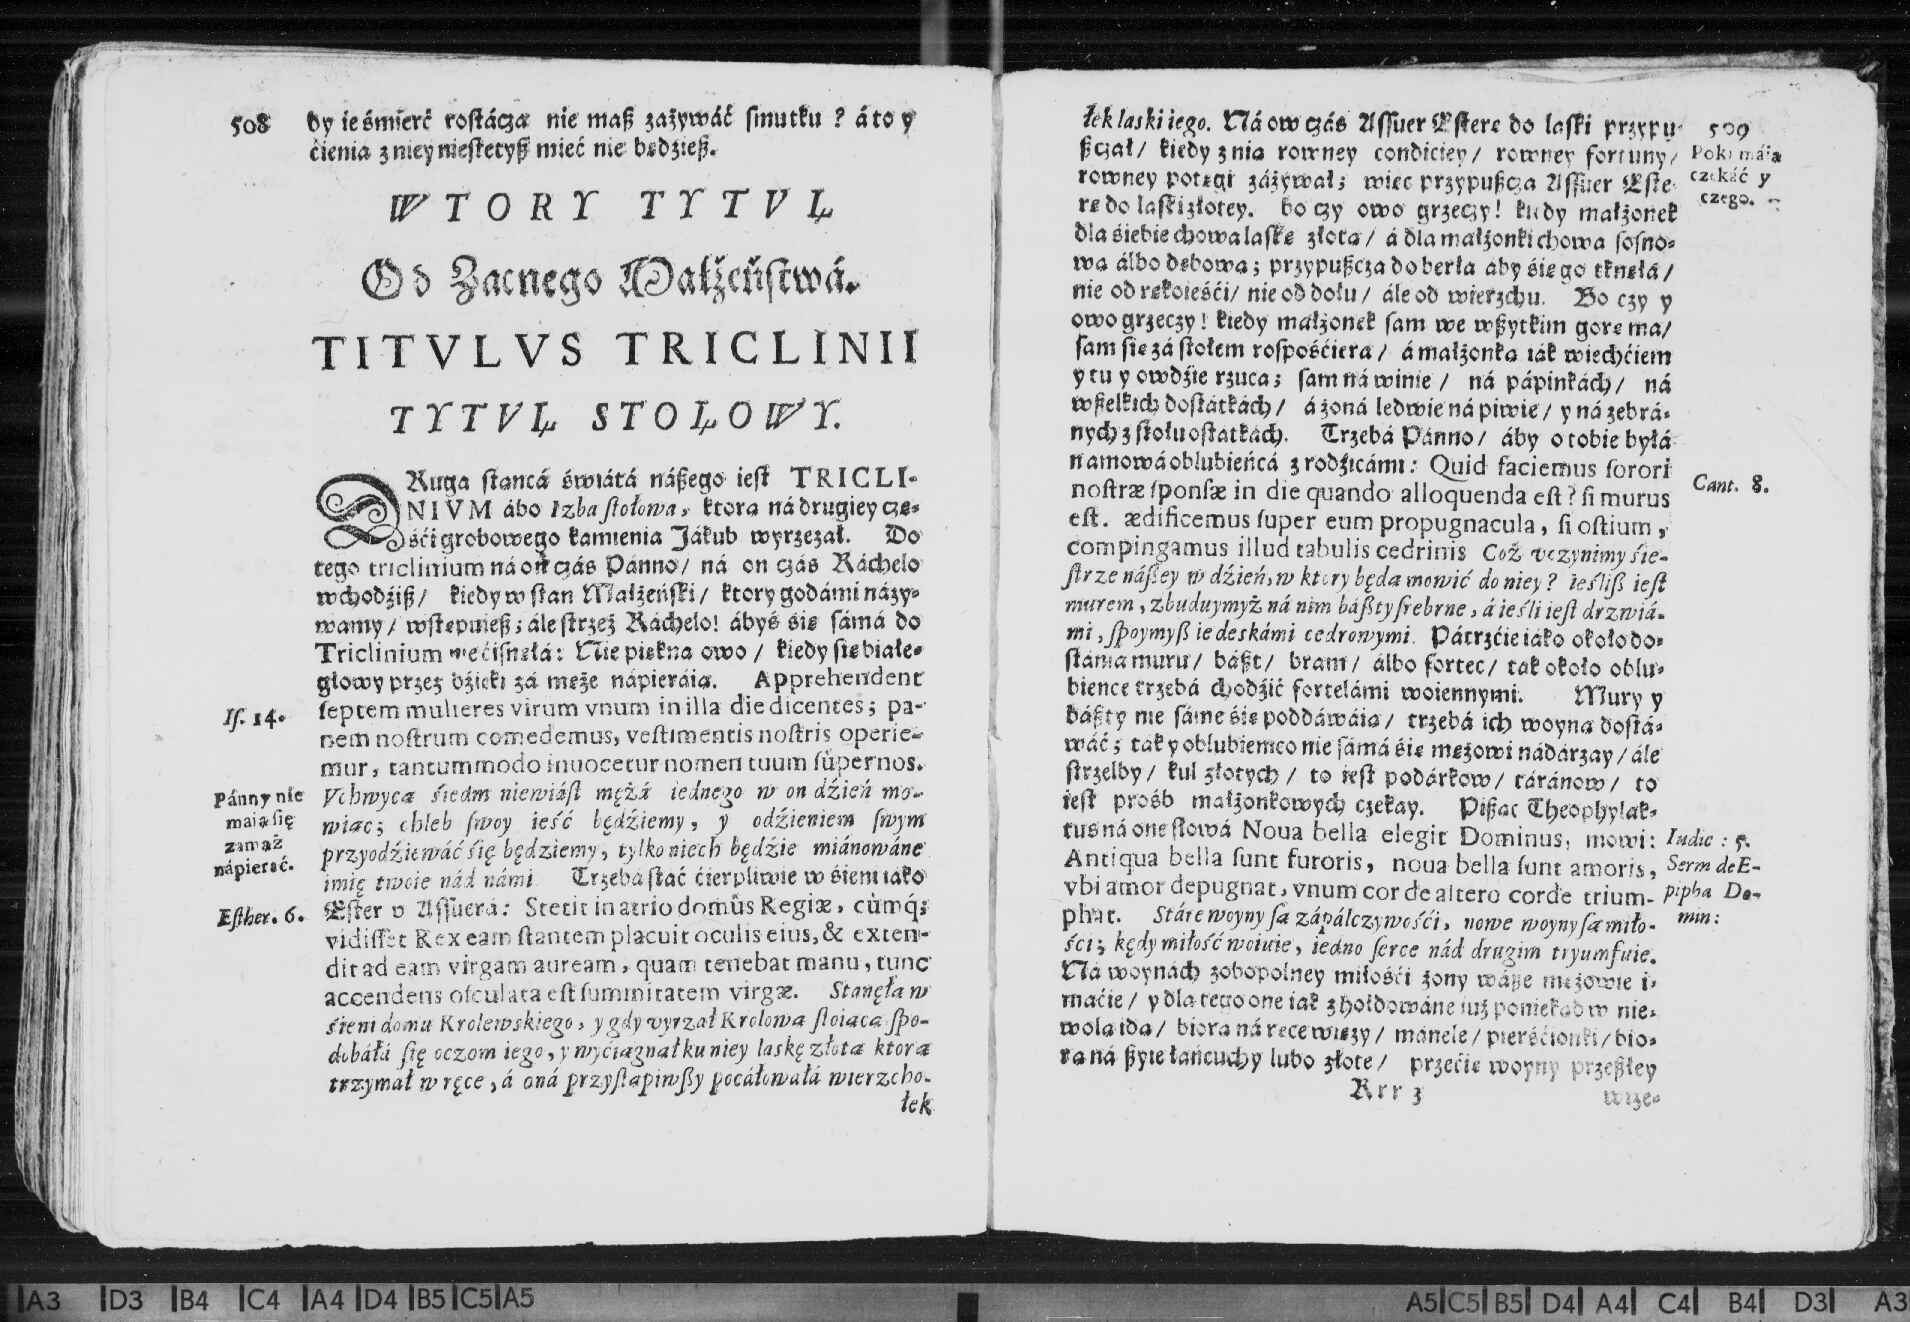 508
dy ie śmierć rostącza nie maß zażywáć smutku ? á to y
ćienia z niey niestetyß mieć nie będzieß.
WTORY TYTVŁ
Od Zacnego Małżeństwá.
TITVLVS TRICLINII
TYTVŁ STOŁOWY.
DRuga stancá świátá nászego iest TRICLI-
NIVM ábo Izba stołowa, ktora ná drugiey czę-
śći grobowego kamienia Jákub wyrzezał. Do
tego triclinium ná on czás Pánno/ ná on czás Ráchelo
wchodźiß/ kiedy w stan Małżeński/ ktory godámi názy-
wamy/ wstępuieß; ále strzeż Ráchelo! ábyś się sámá do
Triclinium nie ćisnęłá: Nie piękna owo/ kiedy się białe-
głowy przez dźięki zá męże nápieráią. Apprehendent
septem mulieres virum vnum in illa die dicentes; pa-
nem nostrum comedemus, vestimentis nostris operie-
mur, tantummodo inuocetur nomen tuum super nos.
Vchwycą śiedm niewiást mężá iednego w on dźień mo-
wiąc; chleb swoy ieść będźiemy, y odźieniem swym
przyodźiewáć się będziemy, tylko niech będźie miánowáne
imię twoie nád námi. Trzebá stać ćierpliwie w śieni iako
Ester v Assuerá: Stetit in atrio domûs Regiæ, cùmq́;
vidisset Rex eam stantem placuit oculis eius, & exten-
dit ad eam virgam auream, quam tenebat manu, tunc
accendens osculata est summitatem virgæ. Stanęła w
śieni domu Krolewskiego, y gdy vyrzał Krolowa stoiąca spo-
dobáłá się oczom iego, y wyciągnał ku niey laskę złota ktora
trzymał w ręce, á oná przystąpiwßy pocáłowałá wierzcho-
łek
Is. 14.
Pánny nie
maią się
zamąż
nápieráć.
Esther. 6.
509
łek laski iego. Ná ow czás Assuer Esterę do laski przypu-
ßczał/ kiedy z nią rowney condiciey/ rowney fortuny/
rowney potęgi záżywał; więc przypußcza Assuer Este-
rę do laski złotey. Bo czy owo grzeczy! kiedy małżonek
dla śiebie chowa laskę złotą/ á dla małżonki chowa sosno-
wą álbo dębową; przypußcza do berła aby się go tknęłá/
nie od rękoieśći/ nie od dołu/ ále od wierzchu. Bo czy y
owo grzeczy! kiedy małżonek sam we wßytkim gorę ma/
sam się zá stołem rospośćiera/ á małżonką iák wiechćiem
y tu y owdźie rzuca; sam ná winie/ ná pápinkách/ ná
wßelkich dostátkách/ á żoná ledwie ná piwie/ y ná zebrá-
nych z stołu ostatkách. Trzebá Pánno/ áby o tobie byłá
namowá oblubieńcá z rodźicámi: Quid faciemus sorori
nostræ sponsæ in die quando alloquenda est? si murus
est. ædificemus super eum propugnacula, si ostium,
compingamus illud tabulis cedrinis Coż vczynimy śie-
strze náßey w dźień, w ktory będa mowić do niey? ieśliß iest
murem, zbuduymyż ná nim báßty srebrne, á ieśli iest drzwiá-
mi, spoymyß ie deskámi cedrowymi. Pátrzćie iáko około do-
stánia muru/ báßt/ bram/ álbo fortec/ tak około oblu-
bience trzebá chodźić fortelámi woiennymi. Mury y
báßty nie sáme śię poddáwáią/ trzebá ich woyną dostá-
wáć; tak y oblubienico nie sámá śię mężowi nádarzay/ ále
strzelby/ kul złotych/ to iest podárkow/ táránow/ to
iest prośb małżonkowych czekay. Pißąc Theophylak-
tus ná one słowá Noua bella elegit Dominus, mowi:
Antiqua bella sunt furoris, noua bella sunt amoris,
vbi amor depugnat, vnum cor de altero corde trium-
phat. Stáre woyny są zápálczywośći, nowe woyny są miło-
śći; kędy miłość woiuie, iedno serce nád drugim tryumfuie.
Ná woynách zobopolney miłośći żony wáße mężowie i-
maćie/ y dla tego one iak zhołdowáne iuż poniekąd w nie-
wolą idą/ biorą ná ręce więzy/ manele/ pierśćionki/ bio-
rą ná ßyię łańcuchy lubo złote/ przećie woyny przeßłey
Rrr 3
wię-
Poki máią
czekáć y
czego.
Cant. 8.
Iudic: 5.
Serm de E-
pipha Do-
min:
A3 D3 B4 C4 A4 D4 B5 C5 A5
A5 C5 B5 D4 A4 C4 B4 D3 A3